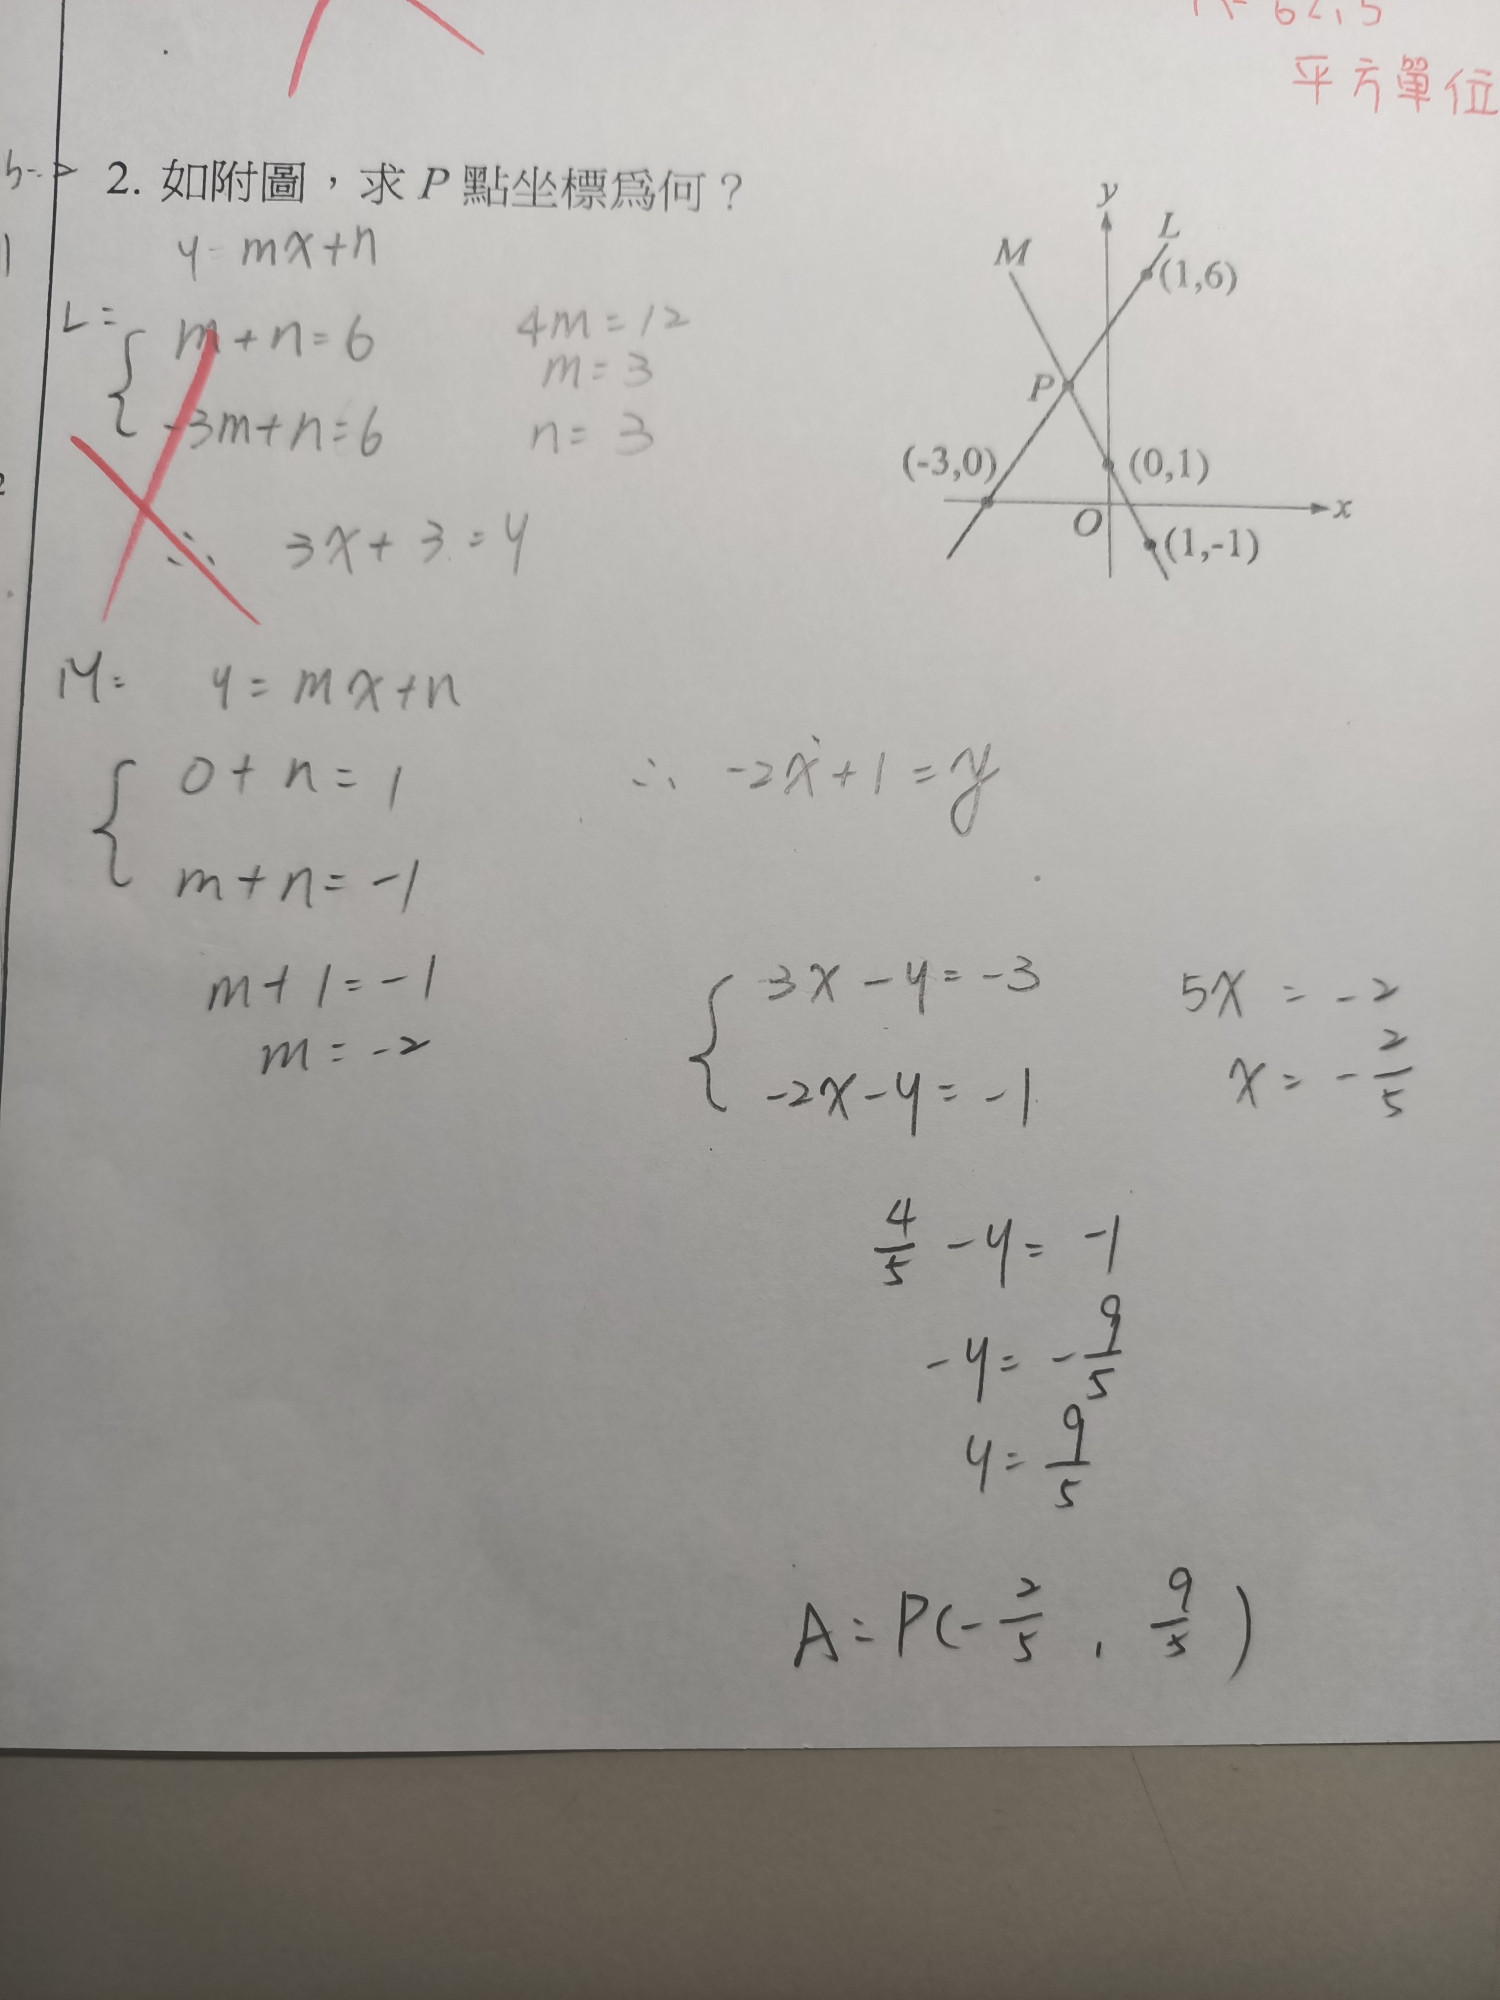 平方單位
2. 如附圖，求 P 點坐標為何？
y = mx+n
L =
m + n = 6
-3m + n = 6
4m = 12
m = 3
n = 3
∴ 3x + 3 = y
y
L
M
(1,6)
P
(-3,0)
(0,1)
O
x
(1,-1)
M: y = mx+n
0 + n = 1
m + n = -1
∴ -2x + 1 = y
m + 1 = -1
m = -2
3x - y = -3
-2x - y = -1
5x = -2
x = -2/5
4/5 - y = -1
-y = -9/5
y = 9/5
A = P(-2/5 , 9/5)